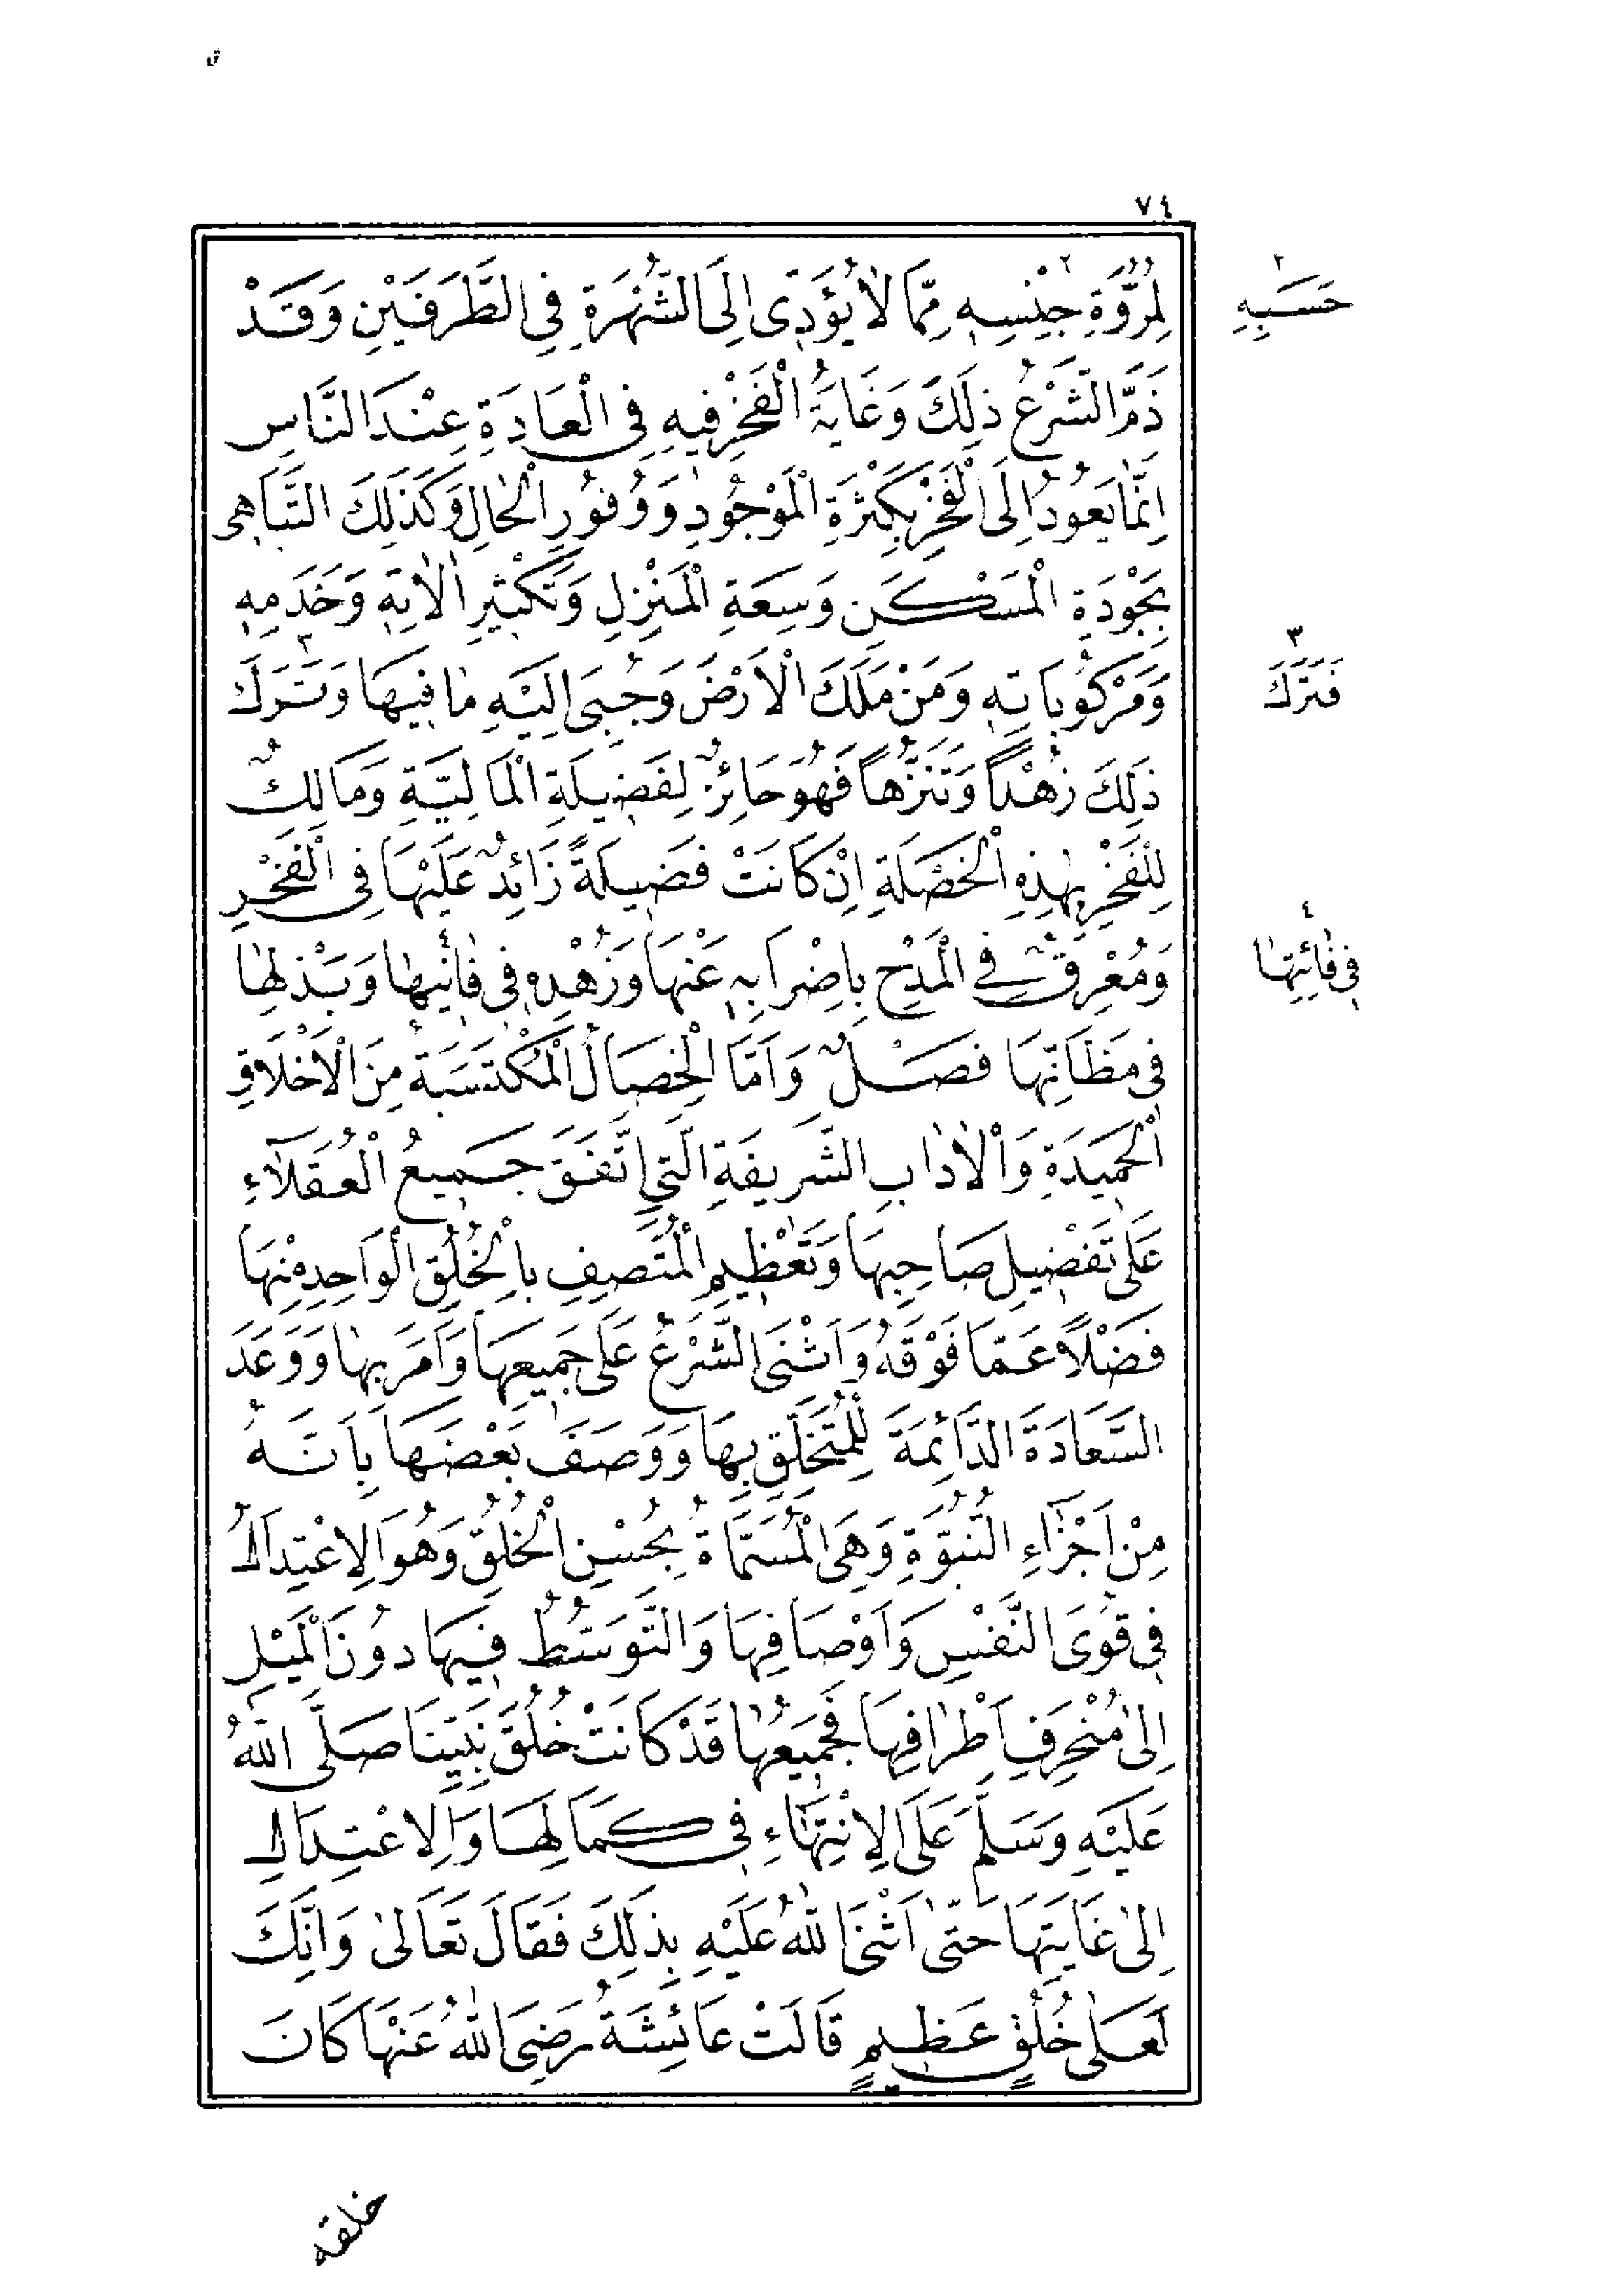 ٧٤
لِمُرُوَّةِ جِنْسِهِ مِمَّا لَا يُؤَدّى اِلَى الشُّهْرَةِ فِى الطَّرَفَيْنِ وَقَدْ
ذَمَّ الشَّرْعُ ذٰلِكَ وَغَايَةُ الْفَخْرِ فِيهِ فِى الْعَادَةِ عِنْدَ النَّاسِ
اِنَّمَا يَعُودُ اِلَى الْفَخْرِ بِكَثْرَةِ الْمَوْجُودِ وَوُفُورِ الْحَالِ وَكَذَلِكَ التَّبَاهِى
بِجَوْدَةِ الْمَسْكَنِ وَسِعَةِ الْمَنْزِلِ وَتَكْثِيرِ اٰلَاتِهِ وَخَدَمِهِ
وَمَرْكُوبَاتِهِ وَمَنْ مَلَكَ الْاَرْضَ وَجُبِىَ اِلَيْهِ مَا فِيهَا وَتَرَكَ
ذٰلِكَ زُهْدًا وَتَنَزُّهًا فَهُوَ حَائِزٌ لِفَضِيلَةِ الْمَالِيَّةِ وَمَالِكٌ
لِلْفَخْرِ بِهٰذِهِ الْخَصْلَةِ اِنْ كَانَتْ فَضِيلَةً زَائِدٌ عَلَيْهَا فِى الْفَخْرِ
وَمُعْرِقٌ فِى الْمَدْحِ بِاِضْرَابِهِ عَنْهَا وَزُهْدِهِ فِى فَانِيهَا وَبَذْلِهَا
فِى مَظَانِّهَا فَصْلٌ وَاَمَّا الْخِصَالُ الْمُكْتَسَبَةُ مِنَ الْاَخْلَاقِ
الْحَمِيدَةِ وَالْاٰدَابِ الشَّرِيفَةِ الَّتِى اتَّفَقَ جَمِيعُ الْعُقَلَاءِ
عَلَى تَفْضِيلِ صَاحِبِهَا وَتَعْظِيمِ الْمُتَّصِفِ بِالْخُلُقِ الْوَاحِدِ مِنْهَا
فَضْلًا عَمَّا فَوْقَهُ وَاَثْنَى الشَّرْعُ عَلَى جَمِيعِهَا وَاَمَرَ بِهَا وَوَعَدَ
السَّعَادَةَ الدَّائِمَةَ لِلْمُتَخَلِّقِ بِهَا وَوَصَفَ بَعْضَهَا بِاَنَّهُ
مِنْ اَجْزَاءِ النُّبُوَّةِ وَهِىَ الْمُسَمَّاةُ بِحُسْنِ الْخُلُقِ وَهُوَ الِاعْتِدَالُ
فِى قُوَى النَّفْسِ وَاَوْصَافِهَا وَالتَّوَسُّطُ فِيهَا دُونَ الْمَيْلِ
اِلٰى مُنْحَرِفِ اَطْرَافِهَا فَجَمِيعُهَا قَدْ كَانَتْ خُلُقَ نَبِيِّنَا صَلَّى اللهُ
عَلَيْهِ وَسَلَّمَ عَلَى الِانْتِهَاءِ فِى كَمَالِهَا وَالِاعْتِدَالِ
اِلٰى غَايَتِهَا حَتّٰى اَثْنَى اللهُ عَلَيْهِ بِذٰلِكَ فَقَالَ تَعَالٰى وَاِنَّكَ
لَعَلٰى خُلُقٍ عَظِيمٍ قَالَتْ عَائِشَةُ رَضِىَ اللهُ عَنْهَا كَانَ
خلقه
٢ حَسَبِهِ
٣ فَتَرَكَ
٤ فِى فَائِتِهَا